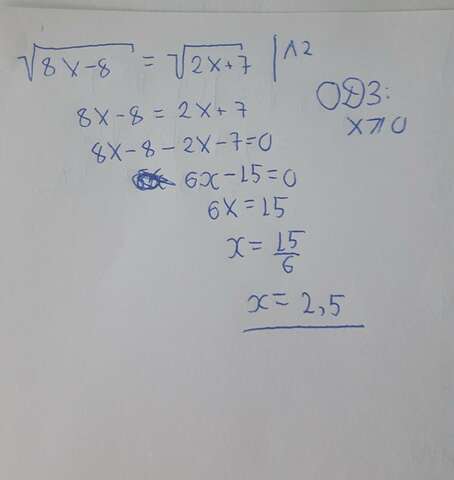 √8x-8 = √2x+7 | ^2
8x-8 = 2x+7
8x-8-2x-7=0
6x-15=0
6x=15
x=15/6
x=2,5
ОДЗ:
x⩾0